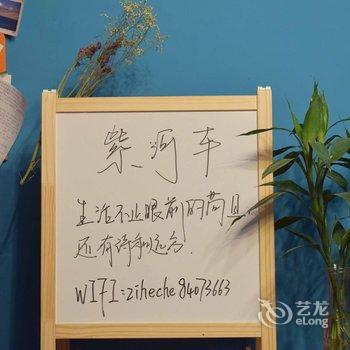 紫河车
生活不止眼前的苟且
还有诗和远方.
WIFI:ziheche84073663
艺龙
eLong